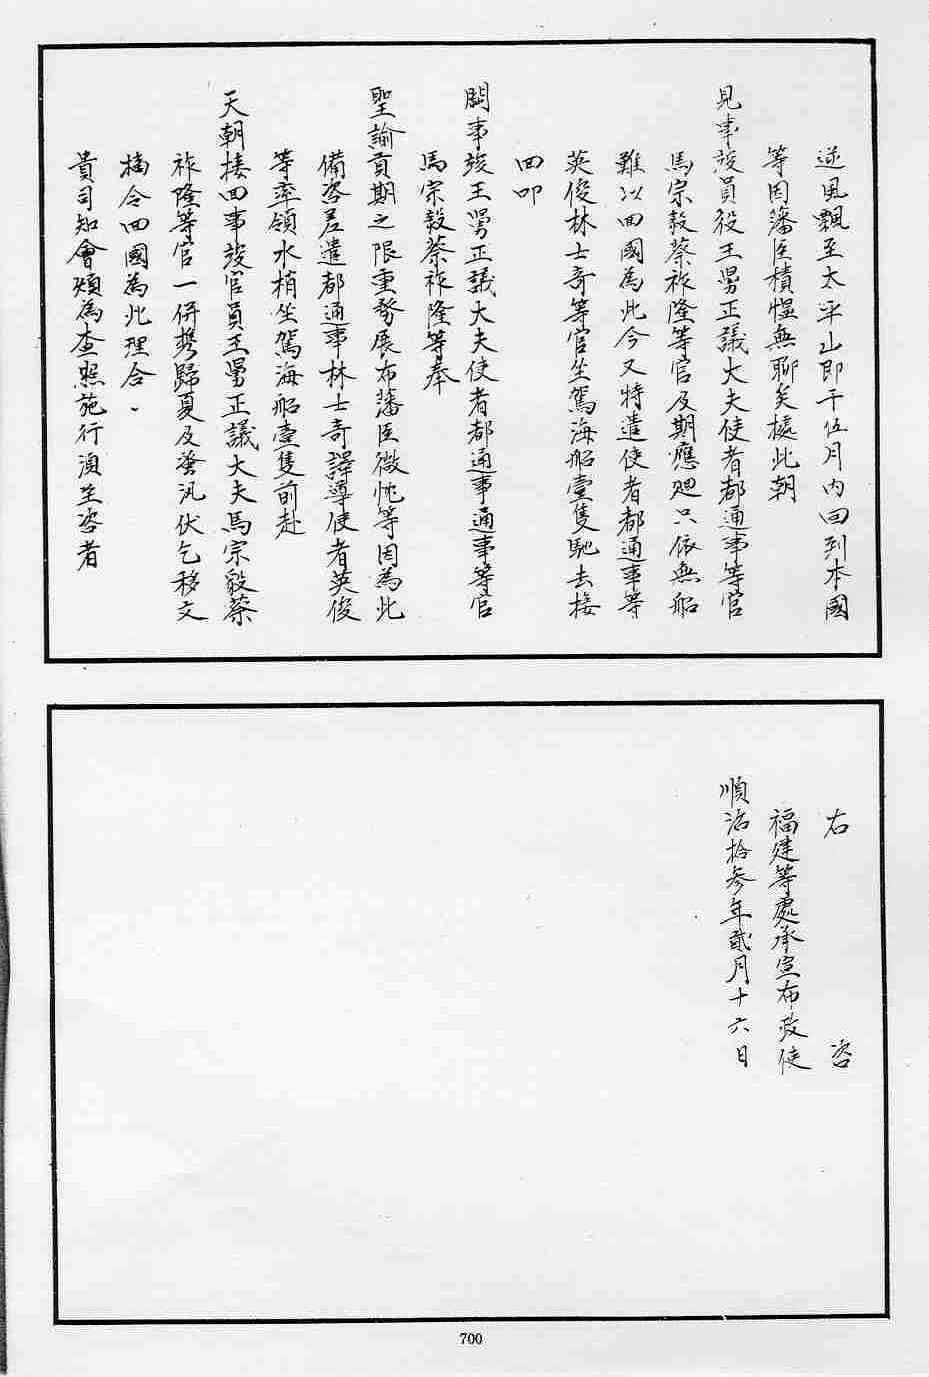 逆風飄至太平山即于伍月内回到本國
等因藩臣積愠無聊矣據此朝
見事竣員役王舅正議大夫使者都通事等官
馬宗毅蔡祚隆等官及期應廻只依無船
難以回國為此今又特遣使者都通事等
英俊林士竒等官坐駕海船壹隻馳去接
回叩
闕事竣王舅正議大夫使者都通事通事等官
馬宗毅蔡祚隆等奉
聖諭貢期之限重務展布藩臣微忱等因為此
備咨差遣都通事林士竒譯導使者英俊
等率領水梢坐駕海船壹隻前赴
天朝接回事竣官員王舅正議大夫馬宗毅蔡
祚隆等官一併携歸夏及蚤汛伏乞移文
檄令回國為此理合
貴司知會煩為查照施行湏至咨者
右咨
福建等處承宣布政使
順治拾參年貳月十六日
700